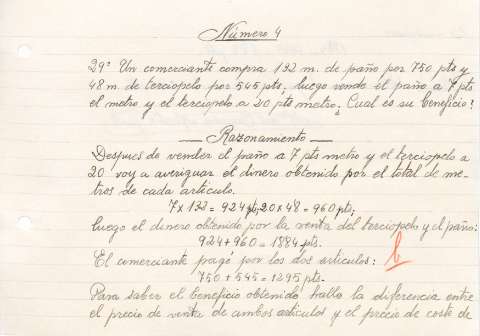 Número 4
29º Un comerciante compra 132 m. de paño por 750 pts y
48 m. de terciopelo por 545 pts, luego vende el paño a 7 pts
el metro y el terciopelo a 20 pts metro ¿Cual es su beneficio?
— Razonamiento —
Despues de vender el paño a 7 pts metro y el terciopelo a
20 voy a averiguar el dinero obtenido por el total de me-
tros de cada artículo.
7 x 132 = 924 pts, 20 x 48 = 960 pts,
luego el dinero obtenido por la venta del terciopelo y el paño:
924 + 960 = 1884 pts.
El comerciante pagó por los dos artículos:
b
750 + 545 = 1295 pts.
Para saber el beneficio obtenido hallo la diferencia entre
el precio de venta de ambos artículos y el precio de coste de